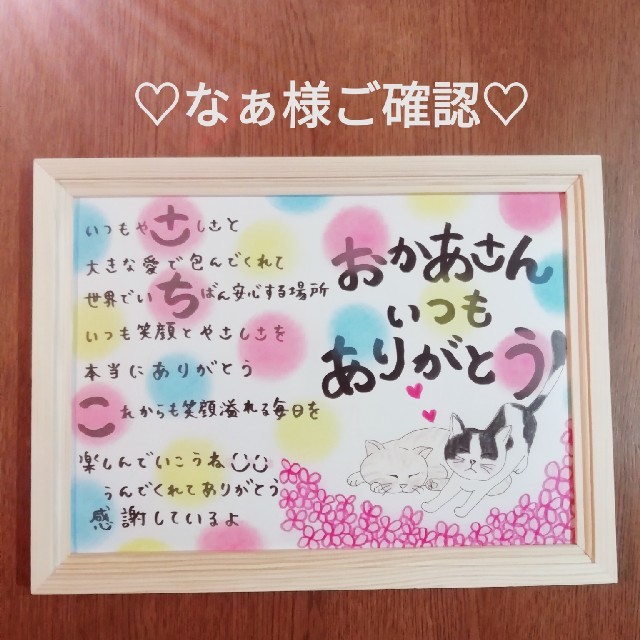 ♡なぁ様ご確認♡
いつもやさしさと
大きな愛で包んでくれて
世界でいちばん安心する場所
いつも笑顔とやさしさを
本当にありがとう
これからも笑顔溢れる毎日を
楽しんでいこうね
うんでくれてありがとう
感謝しているよ
おかあさん
いつも
ありがとう!